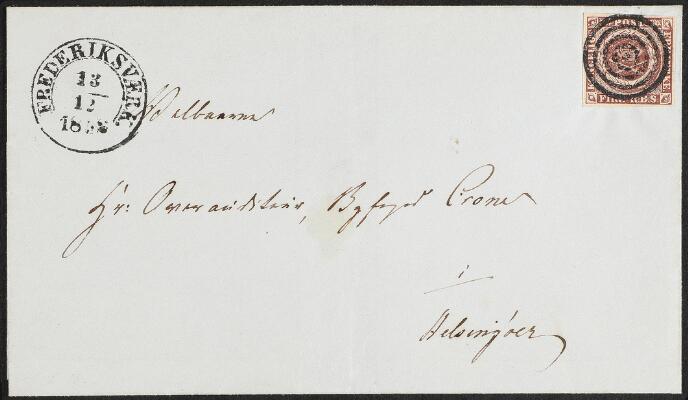 FREDERIKSVÆRK
13
12
1858
Velbaarne
Hr: Overauditeur, Byfoged Crone
i
Helsingöer
POST
FIRE R.B.S.